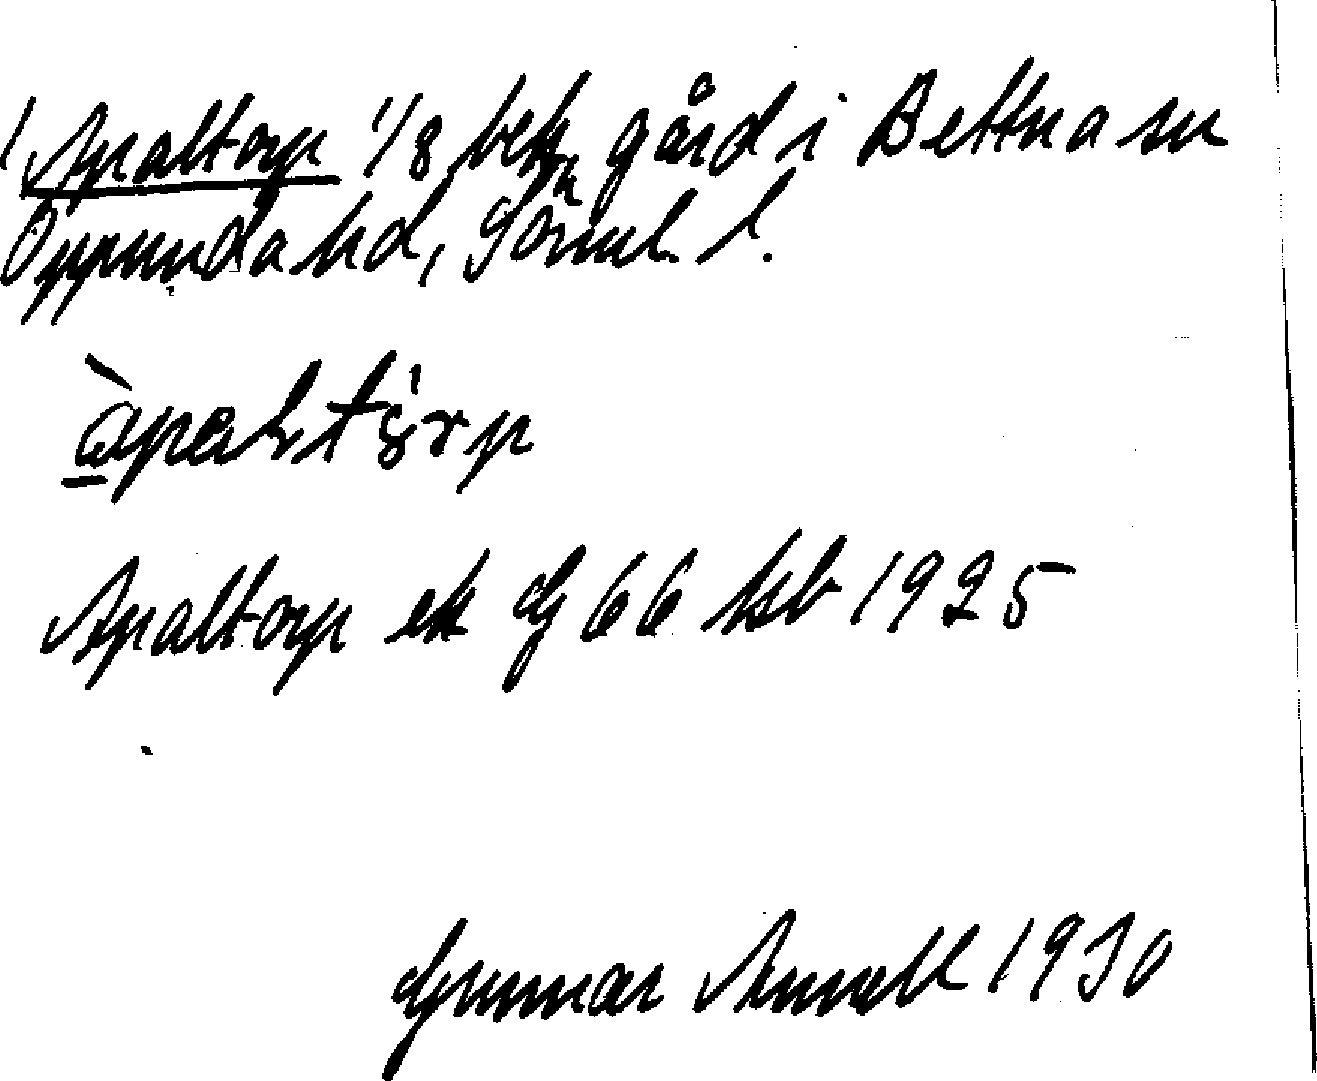 Apaltorp 1/8 gård i Bettna sn
Oppunda hd, Söml. l.
àpaltòrp
Apaltorp ek G 66 hsb 1925
Gunnar Annell 1930